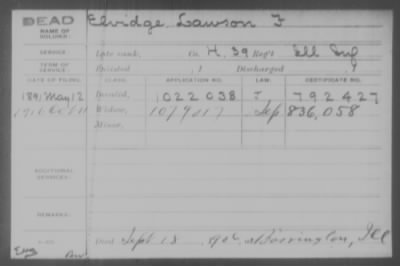 DEAD Elvidge Lawson F
NAME OF SOLDIER:
SERVICE: Late rank, Co. H, 39 Reg't Ill Inf
TERM OF SERVICE: Enlisted , 1 Discharged , 1
DATE OF FILING. CLASS. APPLICATION NO. LAW. CERTIFICATE NO.
1891 May 12 Invalid, 1022038 J 792427
Widow, Sep 836,058
Minor,
ADDITIONAL SERVICES:
REMARKS:
Died Sept 18, Barrington, Ill